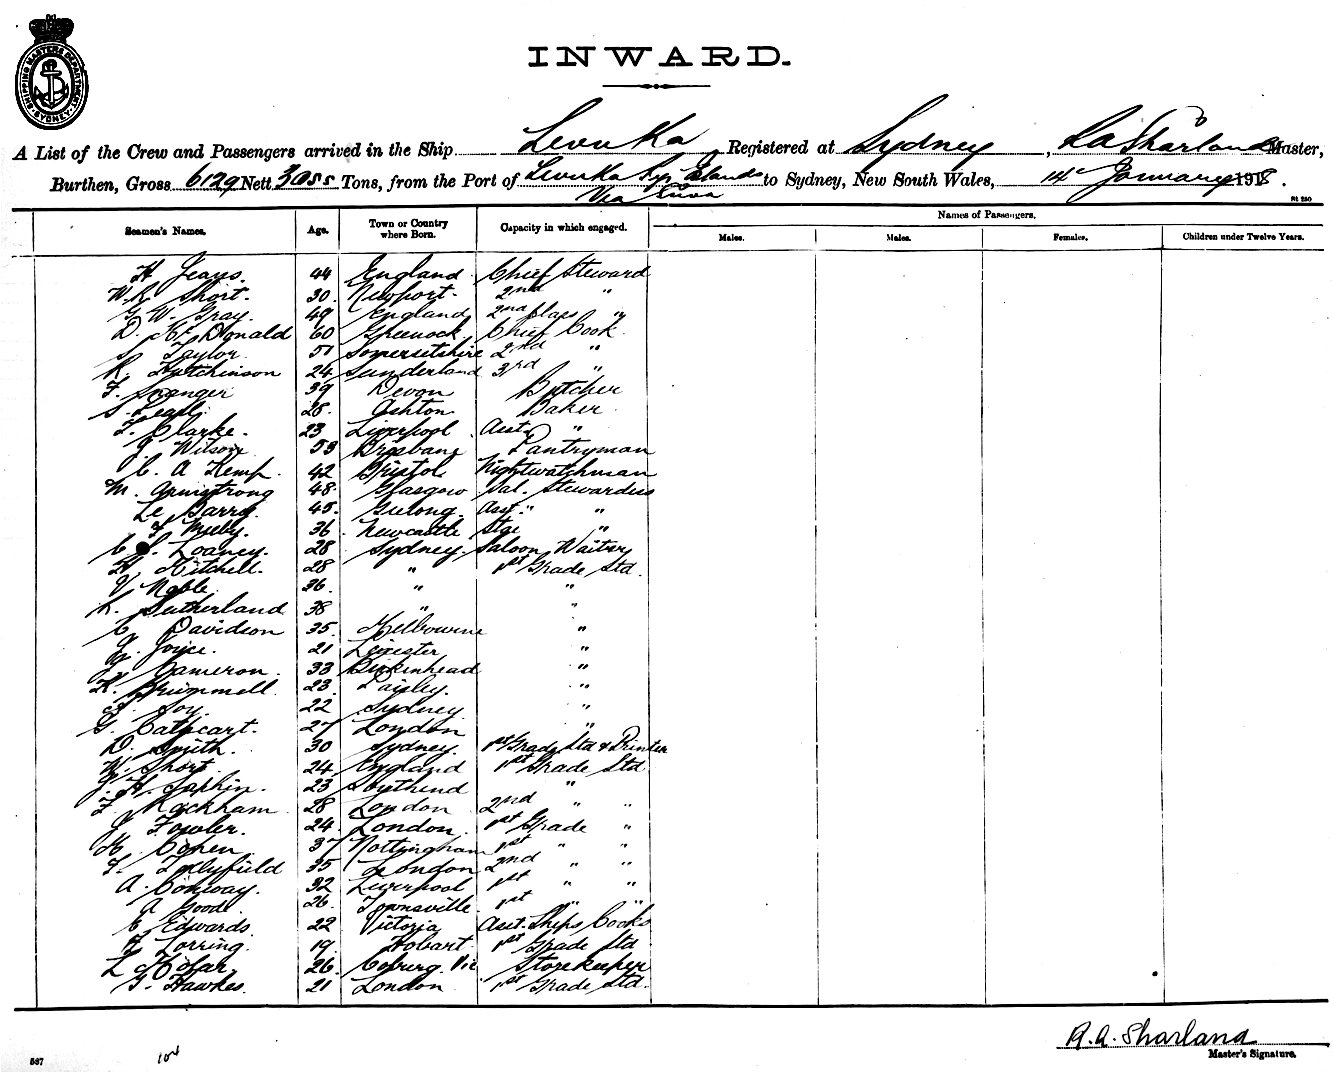 SHIPPING MASTERS DEPARTMENT SYDNEY
INWARD.
A List of the Crew and Passengers arrived in the Ship Levuka Registered at Sydney, R A Sharland Master,
Burthen, Gross 6129 Nett 3055 Tons, from the Port of Levuka Islands to Sydney, New South Wales, 14 January 1918.
Via Suva
Seamen's Names. Age. Town or Country where Born. Capacity in which engaged. Names of Passengers.
Males. Males. Females. Children under Twelve Years.
H. 44 England Chief Steward
W.R. Short. 30. Newport. 2nd "
G. W. Gray. 49 England 2nd Class "
D. McDonald 60 Greenock Chief Cook
S. Taylor 51 Somersetshire 2nd "
R. Hutchinson 24 Sunderland 3rd "
F. 39 Devon Butcher
S. 28. Ashton Baker
F. Clarke. 23 Liverpool Asst "
J. Wilson 53 Brisbane Pantryman
C. A Kemp. 42 Bristol Nightwatchman
M. Armstrong 48. Glasgow Sal. Stewardess
45. Geelong. Asst. " "
36. Newcastle "
C. Loaney. 28 Sydney. Saloon Waiter
Kitchell. 28 " 1st Grade Std.
V. Noble. 36. " "
K. Sutherland 38 " "
C. Davidson 35. Melbourne "
G. Joyce. 21 Leicester "
Cameron. 33 Birkenhead "
R. 23. Paisley. "
Joy. 22 Sydney "
G. Cathcart. 27 London "
D. Smith. 30 Sydney. 1st Grade Std & Printer
W. Short 24. England 1st Grade Std
J. H. 23 Southend "
F. Rackham. 28 London 2nd " "
J. Fowler. 24. London. 1st Grade "
H. Cohen. 37 Nottingham 1st " "
F. Tollyfield 35 London 2nd " "
A. Conway. 32 Liverpool 1st " "
A. Good. 26. Townsville. 1st " "
C. Edwards. 22 Victoria Asst. Ships Cook
Lorring. 19. Hobart 1st Grade Std.
L. 26. Coburg. Vic Storekeeper
G. Hawkes. 21 London 1st Grade Std.
R. A. Sharland
Master's Signature.
537